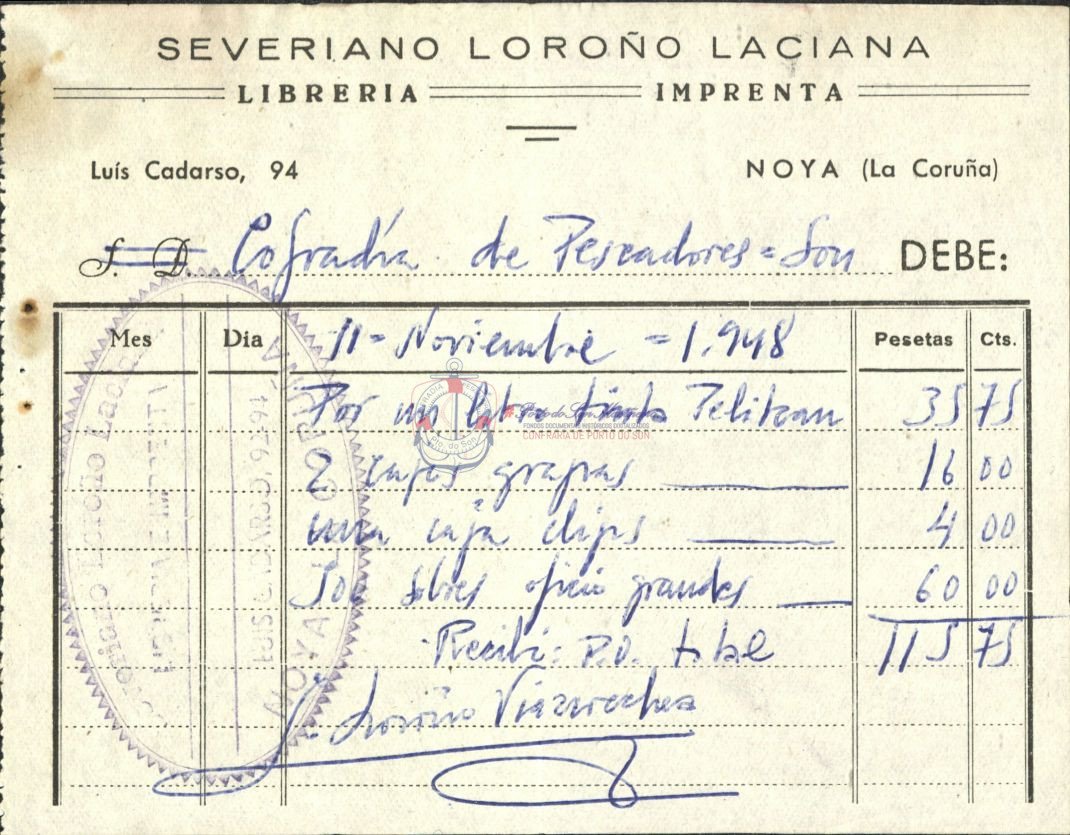 SEVERIANO LOROÑO LACIANA
LIBRERIA IMPRENTA
Luís Cadarso, 94 NOYA (La Coruña)
S. D. Cofradía de Pescadores = Son DEBE:
Mes Dia 11 = Noviembre = 1.948 Pesetas Cts.
Por un litro tinta Pelikan 35 75
2 cajas grapas 16 00
una caja clips 4 00
sobres oficio grandes 60 00
Recibí: P.O. total 115 75
Loroño
Severiano Loroño Laciana
LIBRERIA E IMPRENTA
LUIS CADARSO, 92 94
NOYA
COFRADIA
Pto. do Son
FONDOS DOCUMENTAIS HISTÓRICOS DIXITALIZADOS
CONFRARÍA DE PORTO DO SON